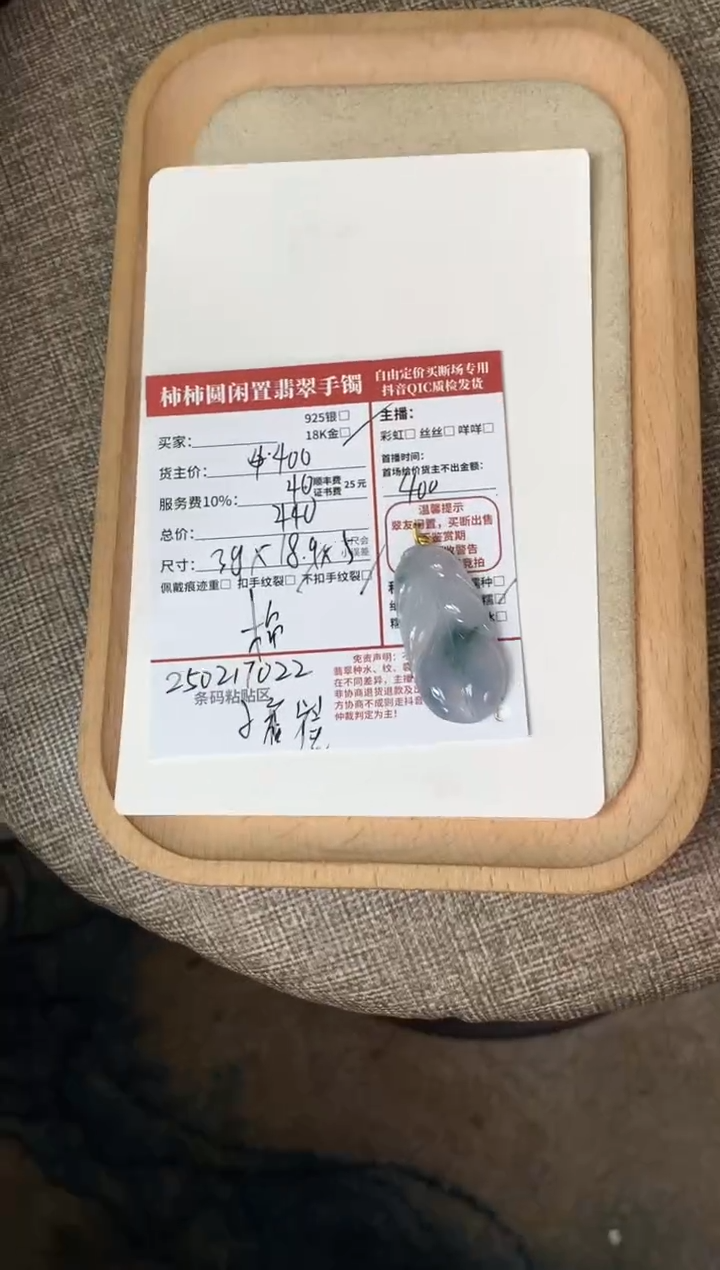 柿柿圓闲置翡翠手镯
自由定价买断场专用
抖音QIC质检发货
925银□
18K金□
买家:
货主价: 400
服务费10%: 40 顺丰费 证书费 25元
总价: 440
尺寸: 39×18.9×5
小误差
佩戴痕迹重□ 扣手纹裂□ 不扣手纹裂□
棉
250217022
条码粘贴区
主播:
彩虹□ 丝丝□ 咩咩□
首播时间:
首场给价货主不出金额:
400
温馨提示
翠友闲置，买断出售
鉴赏期
警告
拍
种□
糯□
□
免责声明:
翡翠种水、纹、
在不同差异，主播
非协商退货退款及
方协商不成则走抖音
仲裁判定为主!